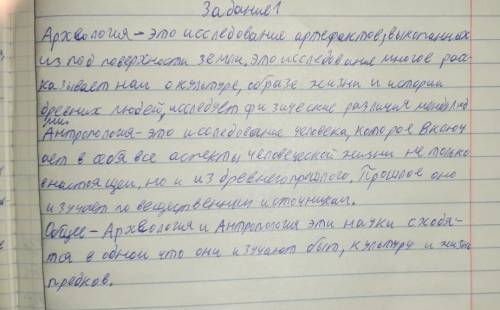 Задание 1
Археология - это исследование артефактов, выкопанных
из под поверхности земли, это исследование многое рас-
сказывает нам о культуре, образе жизни и истории
древних людей, исследует физические различия между люд
ьми.
Антропология - это исследование человека, которое включ
ает в себя все аспекты человеческой жизни не только
в настоящем, но и из древнего прошлого. Прошлое оно
изучает по вещественным источникам.
Общее - Археология и Антропология эти науки сходя-
тся в одном что они изучают быт, культуру и жизнь
предков.